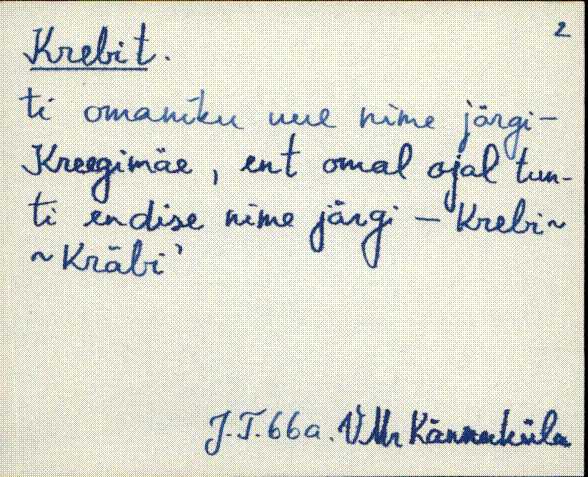 2
Krebit.
ti omaniku uue nime järgi –
Kreegimäe, ent omal ajal tun-
ti endise nime järgi – Krebi ~
~ Kräbi'
J.T. 66a. VMr Kännuküla